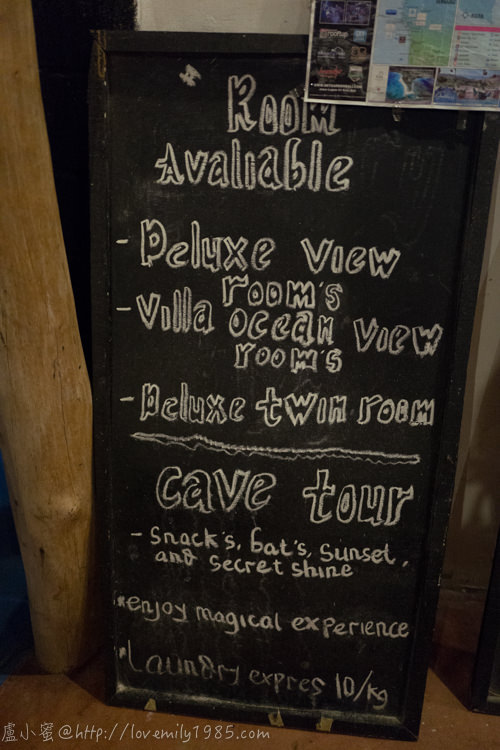 Room
Avaliable
- Deluxe View
room's
- Villa ocean View
room's
- Deluxe twin room
Cave tour
- Snack's, bat's, Sunset,
and secret shine
*enjoy magical experience
*Laundry expres 10/kg
盧小蜜@http://lovemily1985.com